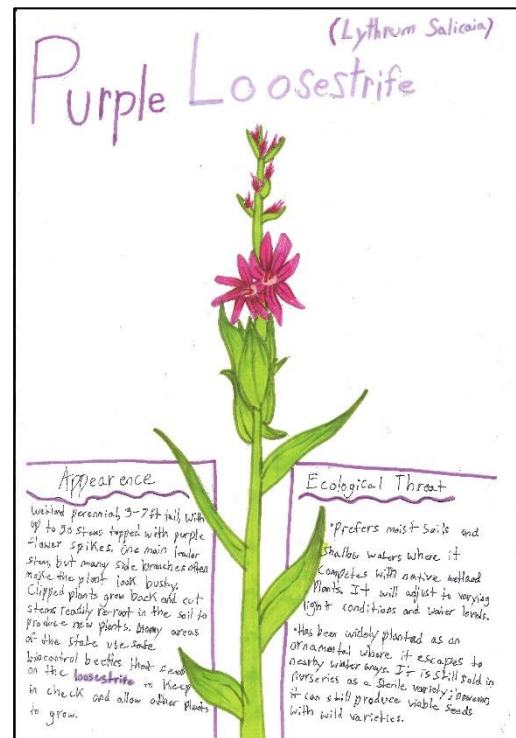 (Lythrum Salicaia)
Purple Loosestrife
Appearence
Wetland perennial, 3-7 ft tall, with
up to 50 stems topped with purple
flower spikes. One main leader
stem, but many side branches often
make the plant look bushy.
Clipped plants grow back and cut
stems readily re-root in the soil to
produce new plants. Many areas
of the state use safe
biocontrol beetles that
on the loosestrife to keep
in check and allow other plants
to grow.
Ecological Threat
•prefers moist soils and
shallow waters where it
competes with native wetland
plants. It will adjust to varying
light conditions and water levels.
•Has been widely planted as an
ornamental where it escapes to
nearby water ways. It is still sold in
nurseries as a sterile variety; however,
it can still produce viable seeds
with wild varieties.